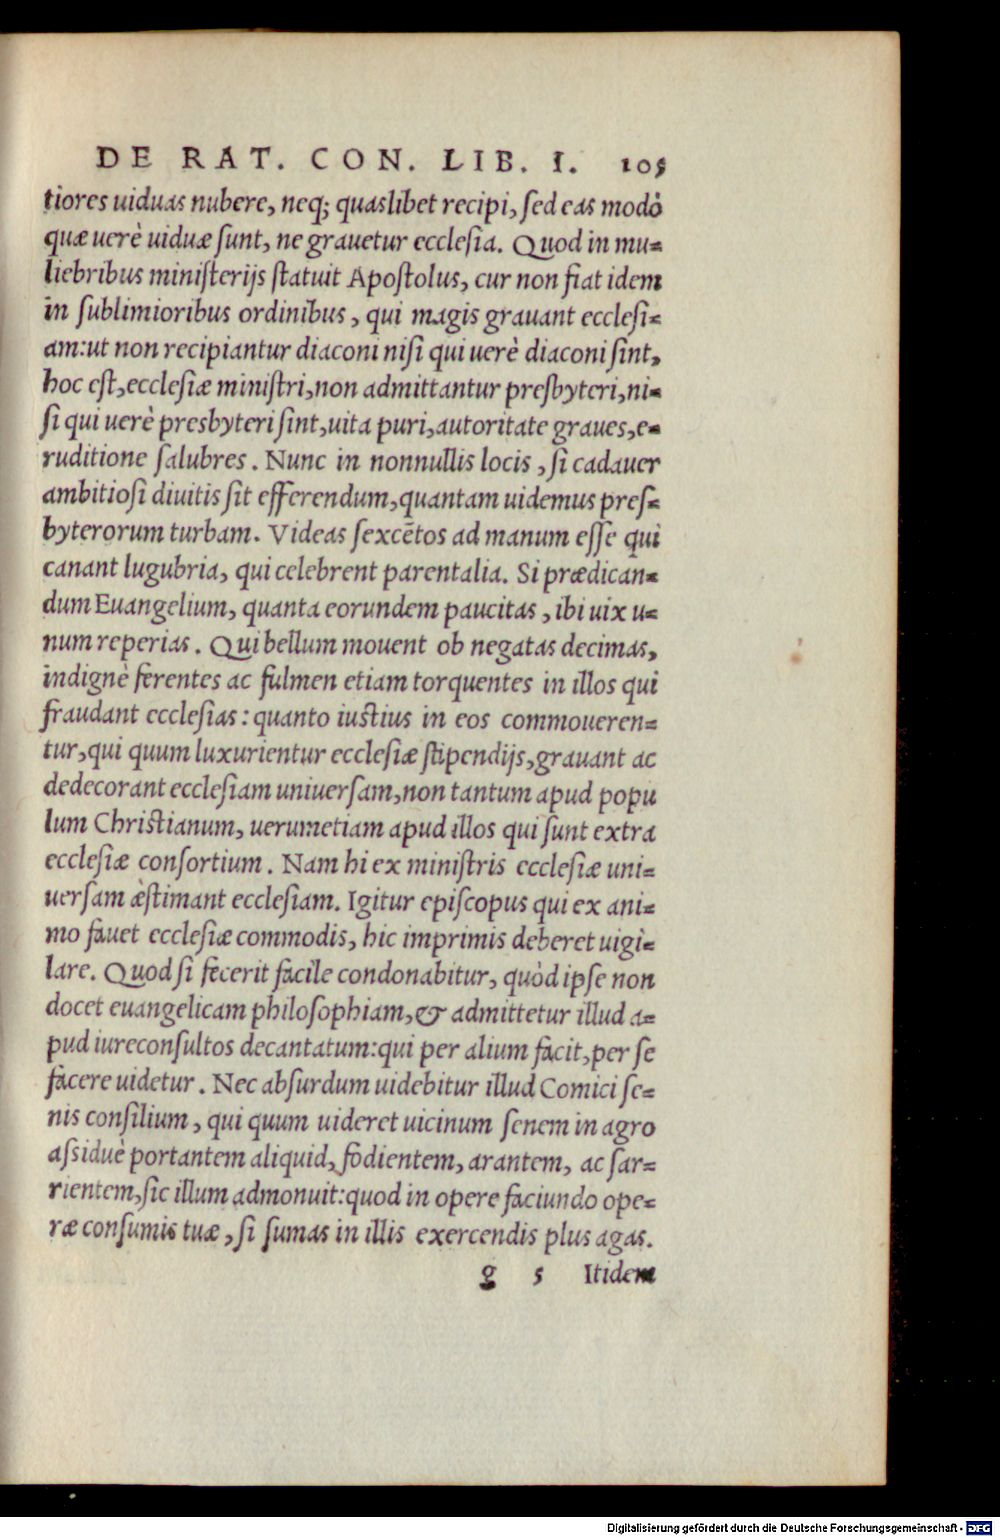 DE RAT. CON. LIB. I. 105
tiores uiduas nubere, neq; quaslibet recipi, sed eas modò
quæ uerè uiduæ sunt, ne grauetur ecclesia. Quod in mu-
liebribus ministerijs statuit Apostolus, cur non fiat idem
in sublimioribus ordinibus, qui magis grauant ecclesi-
am: ut non recipiantur diaconi nisi qui uerè diaconi sint,
hoc est, ecclesiæ ministri, non admittantur presbyteri, ni-
si qui uerè presbyteri sint, uita puri, autoritate graues, e-
ruditione salubres. Nunc in nonnullis locis, si cadauer
ambitiosi diuitis sit efferendum, quantam uidemus pres-
byterorum turbam. Videas sexcẽtos ad manum esse qui
canant lugubria, qui celebrent parentalia. Si prædican-
dum Euangelium, quanta eorundem paucitas, ibi uix u-
num reperias. Qui bellum mouent ob negatas decimas,
indignè ferentes ac fulmen etiam torquentes in illos qui
fraudant ecclesias: quanto iustius in eos commoueren-
tur, qui quum luxurientur ecclesiæ stipendijs, grauant ac
dedecorant ecclesiam uniuersam, non tantum apud popu
lum Christianum, uerumetiam apud illos qui sunt extra
ecclesiæ consortium. Nam hi ex ministris ecclesiæ uni-
uersam æ̀stimant ecclesiam. Igitur episcopus qui ex ani-
mo fauet ecclesiæ commodis, hic imprimis deberet uigi-
lare. Quod si fecerit facile condonabitur, quòd ipse non
docet euangelicam philosophiam, & admittetur illud a-
pud iureconsultos decantatum: qui per alium facit, per se
facere uidetur. Nec absurdum uidebitur illud Comici se-
nis consilium, qui quum uideret uicinum senem in agro
assiduè portantem aliquid, fodientem, arantem, ac sar-
rientem, sic illum admonuit: quod in opere faciundo ope-
ræ consumis tuæ, si sumas in illis exercendis plus agas.
g 5 Itidem
Digitalisierung gefördert durch die Deutsche Forschungsgemeinschaft - DFG